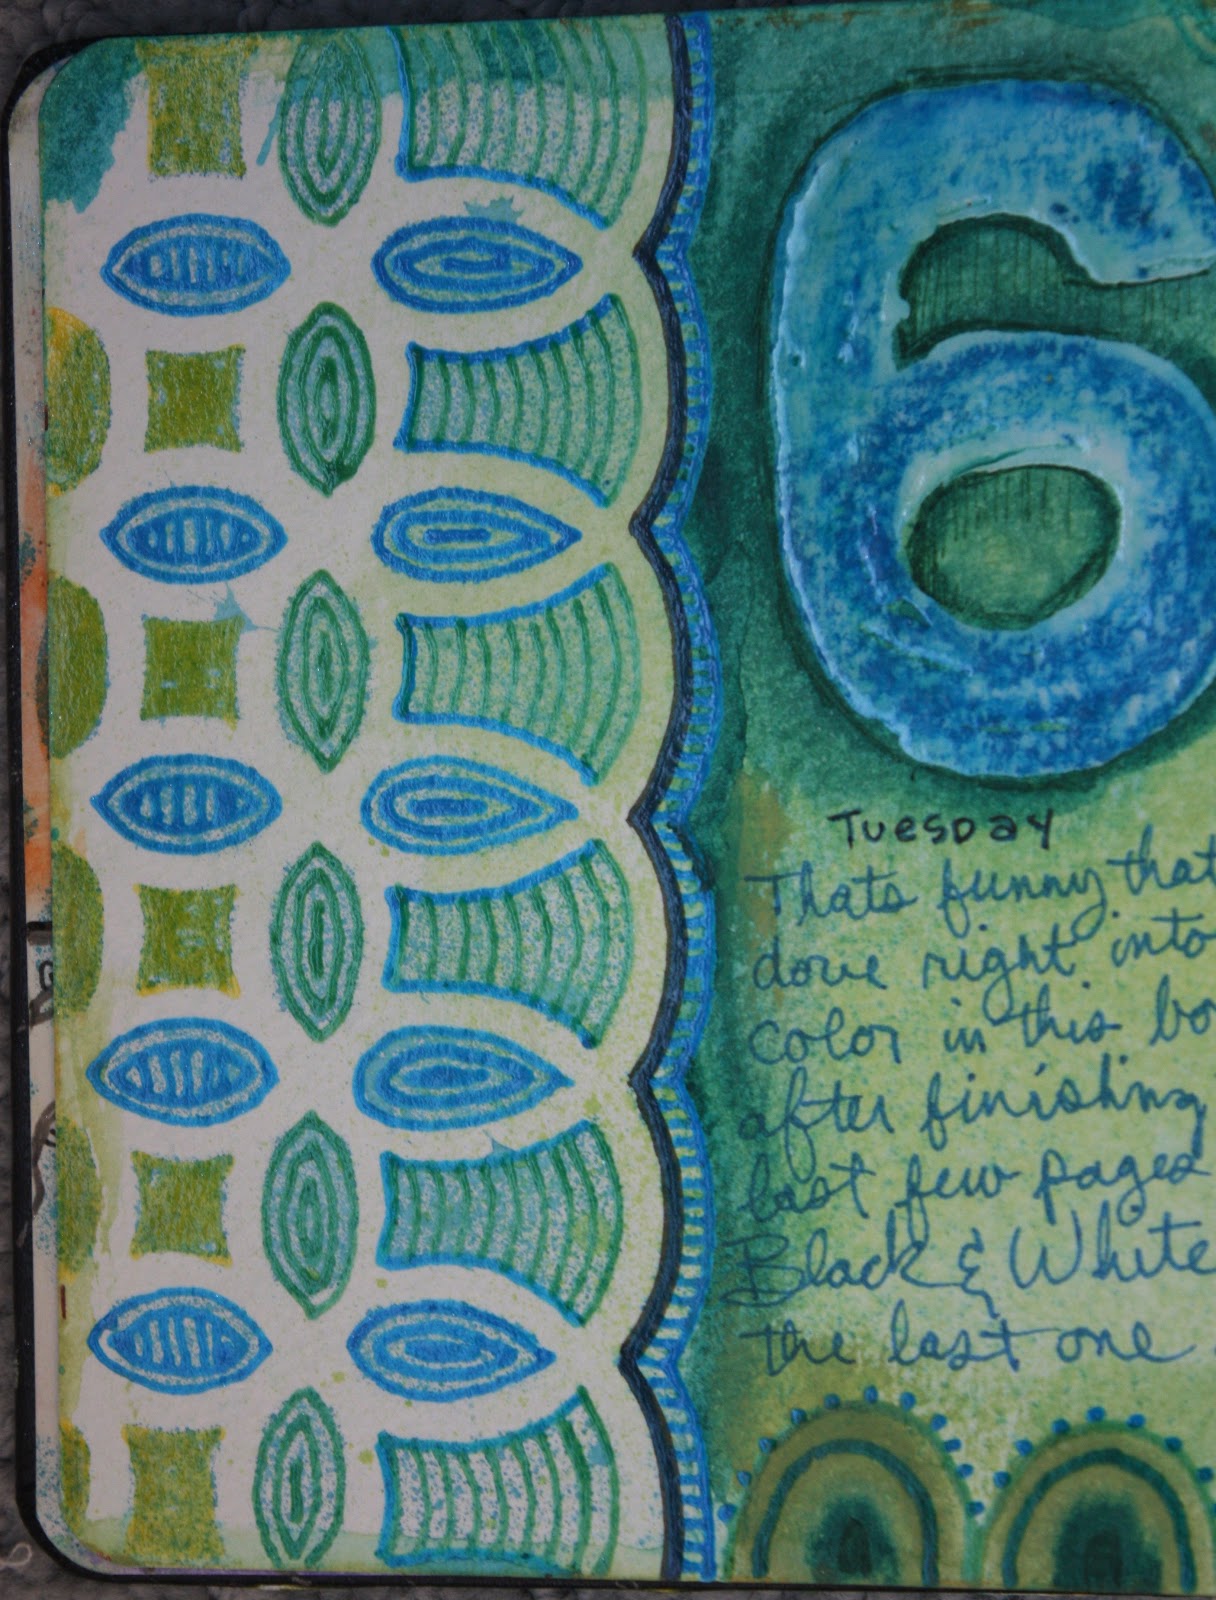 6
Tuesday
Thats funny that
dove right into
color in this bo
after finishing
last few pages
Black & White
the last one